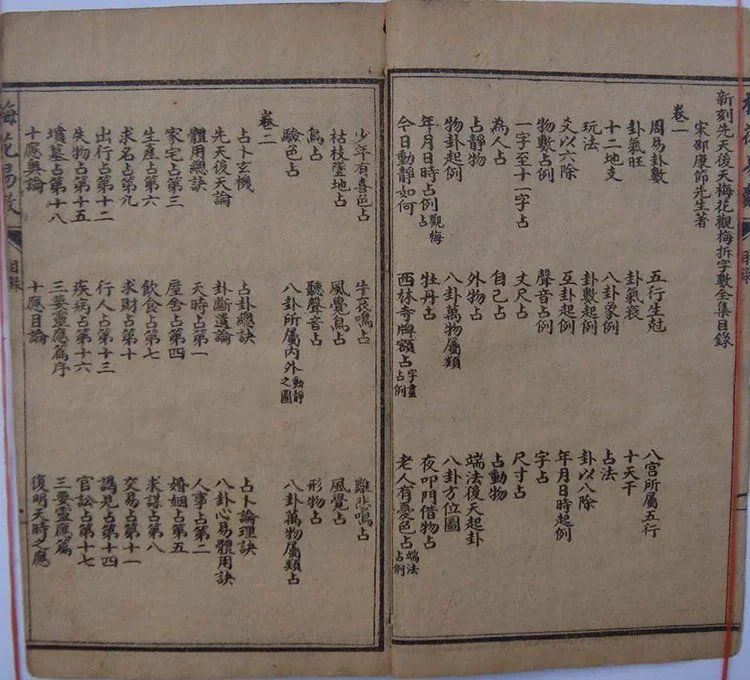 新刻先天後天梅花觀梅拆字數全集目錄
宋邵康節先生著
卷一
周易卦數 五行生尅 八宮所屬五行
卦氣旺 卦氣衰 十天干
十二地支 八卦象例 占法
玩法 卦數起例 卦以八除
爻以六除 互卦起例 年月日時起例
物數占例 聲音占例 字占
一字至十一字占 丈尺占 尺寸占
為人占 自己占 占動物
占靜物 外物占 端法後天起卦
物卦起例 八卦萬物屬類 八卦方位圖
年月日時占例觀梅占 牡丹占 夜叩門借物占
今日動靜如何 西林寺牌額占字畫占例 老人有憂色占端法占例
少年有喜色占 牛哀鳴占 雞悲鳴占
枯枝墜地占 風覺鳥占 風覺占
鳥占 聽聲音占 形物占
驗色占 八卦所屬內外動靜之圖 八卦萬物屬類占
卷二
占卜玄機 占卦總訣 占卜論理訣
先天後天論 卦斷遺論 八卦心易體用訣
體用總訣 天時占第一 人事占第二
家宅占第三 屋舍占第四 婚姻占第五
生產占第六 飲食占第七 求謀占第八
求名占第九 求財占第十 交易占十一
出行占第十二 行人占第十三 謁見占第十四
失物占第十五 疾病占第十六 官訟占第十七
墳墓占第十八 三要靈應篇序 三要靈應篇
十應奧論 十應目論 復明天時之應
梅花易數 目錄